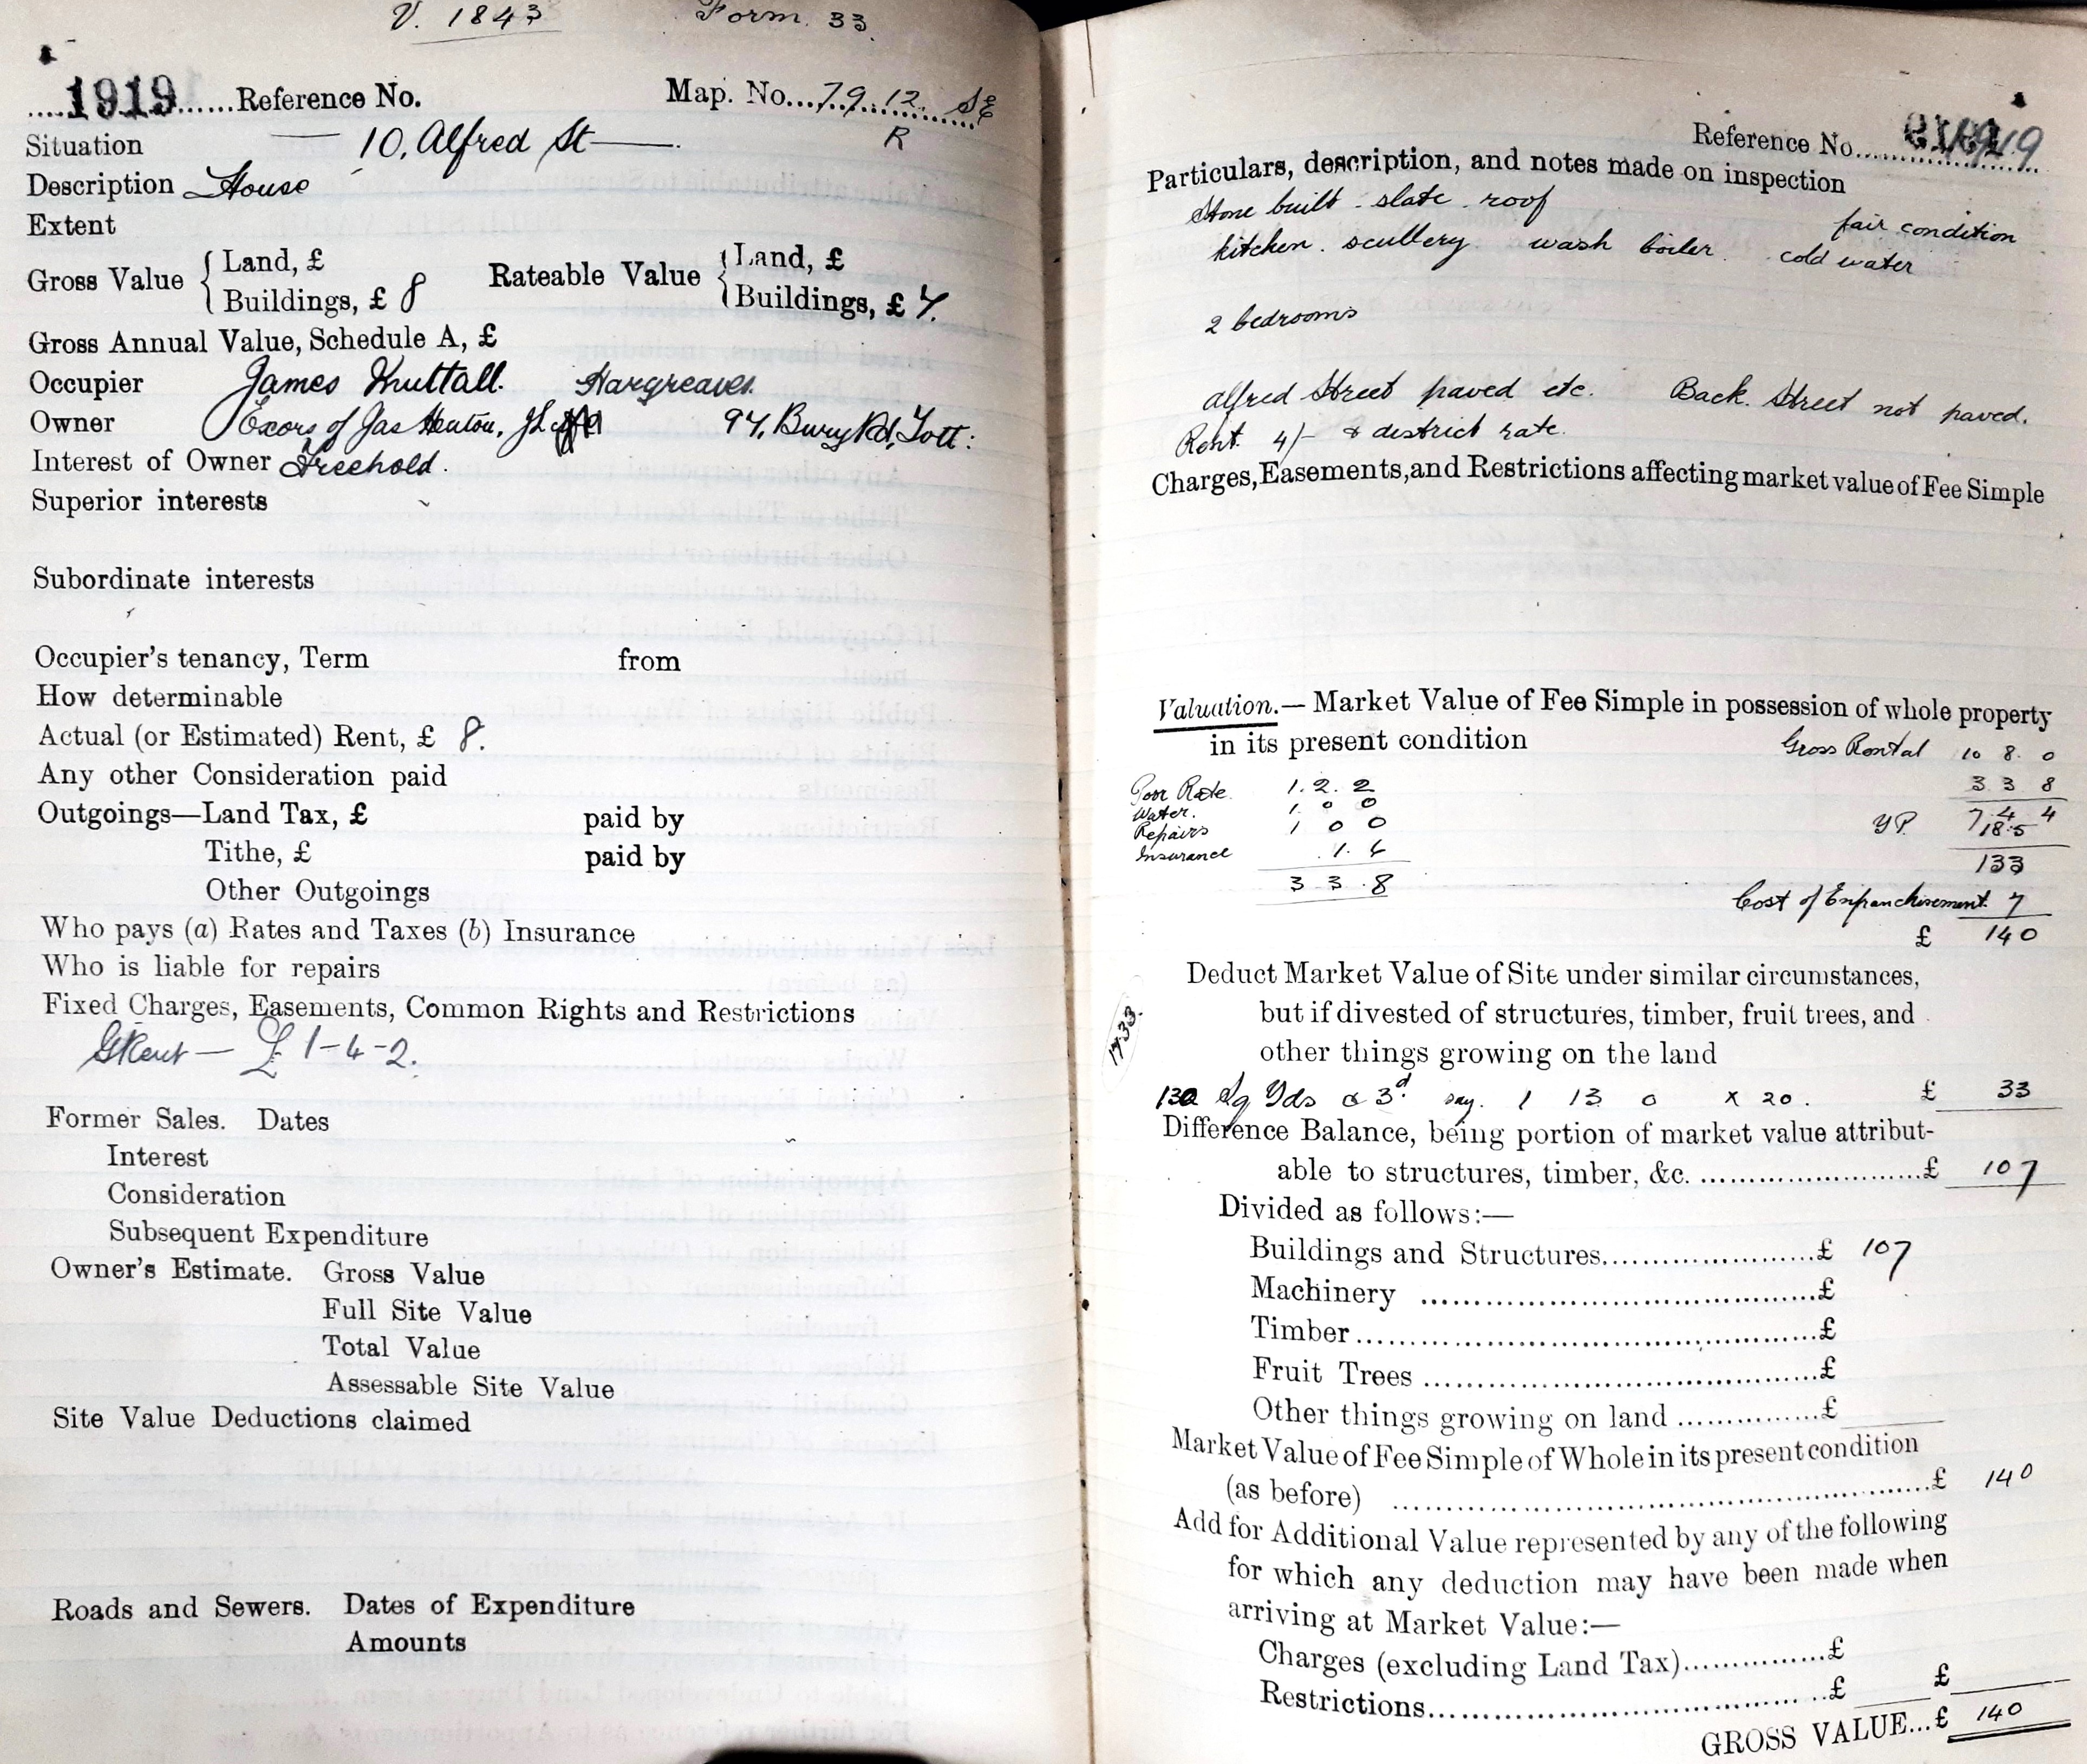 V. 1843 Form. 33.
1919 Reference No. Map. No. 79. 12. SE
R
Situation 10, Alfred St
Description House
Extent
Gross Value { Land, £
Buildings, £ 8
Rateable Value { Land, £
Buildings, £ 7.
Gross Annual Value, Schedule A, £
Occupier James Nuttall. Hargreaves
Owner Exors of Jas 97, Bury Rd, Tott:
Interest of Owner Freehold.
Superior interests
Subordinate interests
Occupier's tenancy, Term from
How determinable
Actual (or Estimated) Rent, £ 8.
Any other Consideration paid
Outgoings—Land Tax, £ paid by
Tithe, £ paid by
Other Outgoings
Who pays (a) Rates and Taxes (b) Insurance
Who is liable for repairs
Fixed Charges, Easements, Common Rights and Restrictions
GRent — £1-4-2.
Former Sales. Dates
Interest
Consideration
Subsequent Expenditure
Owner's Estimate. Gross Value
Full Site Value
Total Value
Assessable Site Value
Site Value Deductions claimed
Roads and Sewers. Dates of Expenditure
Amounts
Reference No. 1919
Particulars, description, and notes made on inspection
Stone built - slate roof
fair condition
kitchen. scullery wash boiler. cold water
2 bedrooms
Alfred Street paved etc. Back Street not paved.
Rent. 4/- & district rate.
Charges, Easements, and Restrictions affecting market value of Fee Simple
Valuation.— Market Value of Fee Simple in possession of whole property
in its present condition
Gross Rental 10 8. 0
3 3 8
YP. 7. 4 4
18.5
133
Cost of Enfranchisement. 7
£ 140
Poor Rate. 1. 2. 2
Water. 1. 0 0
Repairs 1 0 0
Insurance . 1. 6
3 3. 8
Deduct Market Value of Site under similar circumstances,
but if divested of structures, timber, fruit trees, and
other things growing on the land
1733.
130 Sq Yds @ 3d. say. 1 13 0 x 20. £ 33
Difference Balance, being portion of market value attribut-
able to structures, timber, &c. £ 107
Divided as follows:—
Buildings and Structures £ 107
Machinery £
Timber £
Fruit Trees £
Other things growing on land £
Market Value of Fee Simple of Whole in its present condition
(as before) £ 140
Add for Additional Value represented by any of the following
for which any deduction may have been made when
arriving at Market Value:—
Charges (excluding Land Tax) £
Restrictions £ £
GROSS VALUE...£ 140